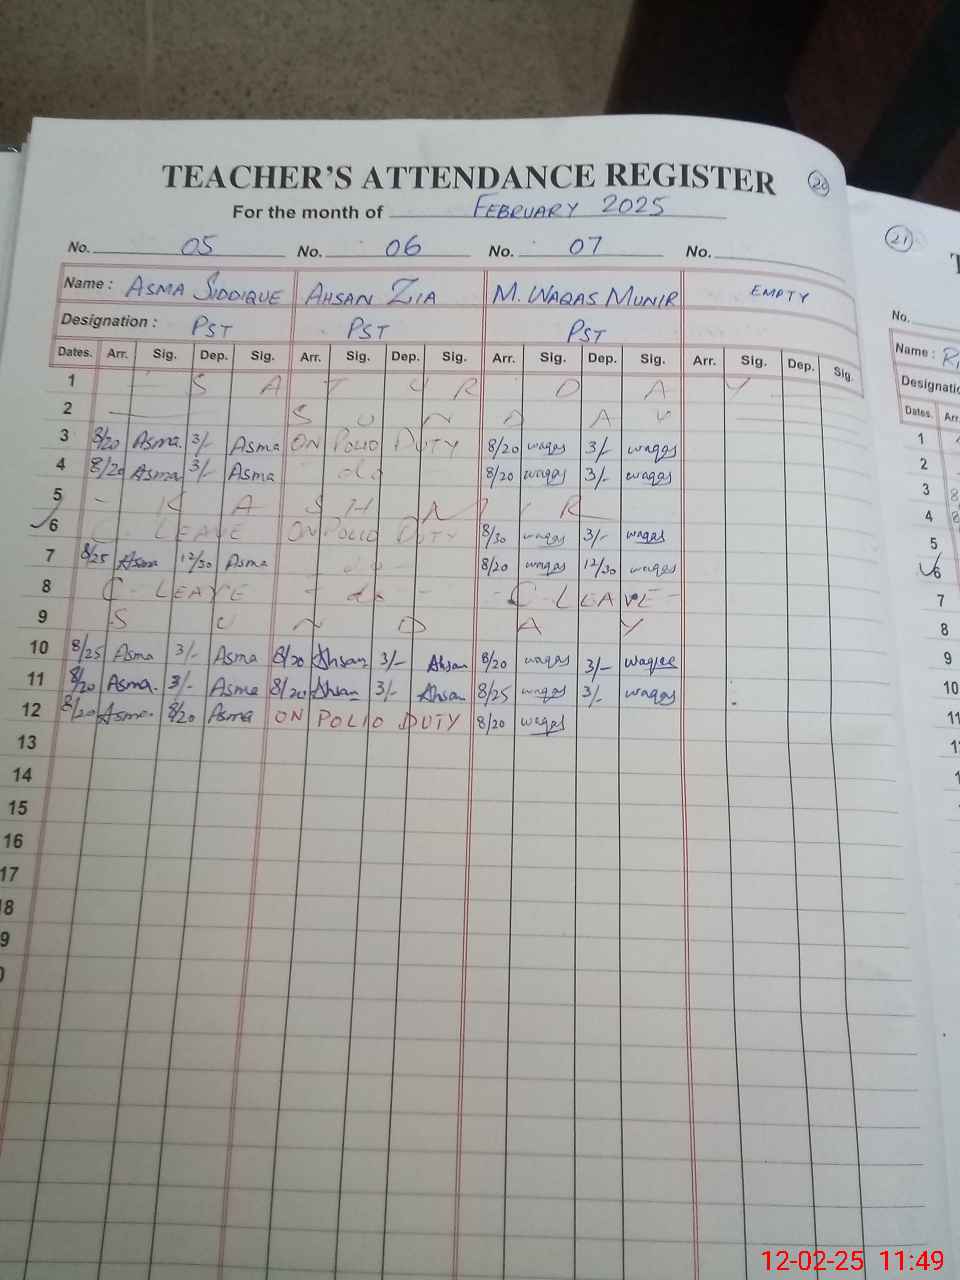 TEACHER'S ATTENDANCE REGISTER 20
For the month of FEBRUARY 2025
21
No. 05 No. 06 No. 07 No.
No.
Name : ASMA SIDDIQUE AHSAN ZIA M. WAQAS MUNIR EMPTY
Name :
Designation : PST PST PST
Dates. Arr. Sig. Dep. Sig. Arr. Sig. Dep. Sig. Arr. Sig. Dep. Sig. Arr. Sig. Dep. Sig.
Dates. Arr.
1 S A T U R D A Y
2 S U N D A Y
3 8/20 Asma 3/- Asma ON POLIO DUTY 8/20 waqas 3/- waqas
4 8/20 Asma 3/- Asma do 8/20 waqas 3/- waqas
5 - K A S H M I R
6 C. LEAVE ON POLIO DUTY 8/30 waqas 3/- waqas
7 8/25 Asma 12/30 Asma 8/20 waqas 12/30 waqas
8 C. LEAVE - do - - C. LEAVE -
9 S U N D A Y
10 8/25 Asma 3/- Asma 8/20 Ahsan 3/- Ahsan 8/20 waqas 3/- waqas
11 8/20 Asma. 3/- Asma 8/20 Ahsan 3/- Ahsan 8/25 waqas 3/- waqas
12 8/20 Asma. 8/20 Asma ON POLIO DUTY 8/20 waqas
13
14
15
16
17
18
9
1
2
3
4
5
6
7
8
9
10
11
12-02-25 11:49